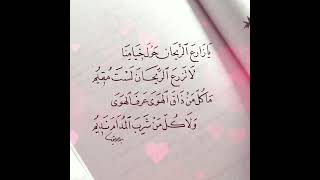 يا زارع الريحان حول خيامنا
لا تزرع الريحان لست مقيم
ما كل من ذاق الهوى عرف الهوى
ولا كل من شرب المدام نديم